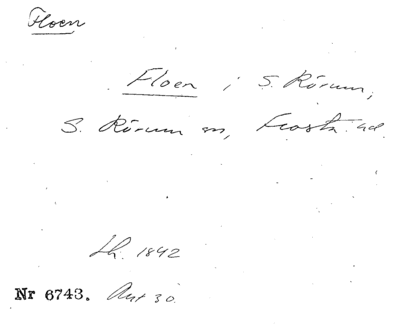 Floen
Floen i S. Rörum,
S. Rörum sn, Frosta hd.
Lh. 1842
Nr 6743. Ant 30.